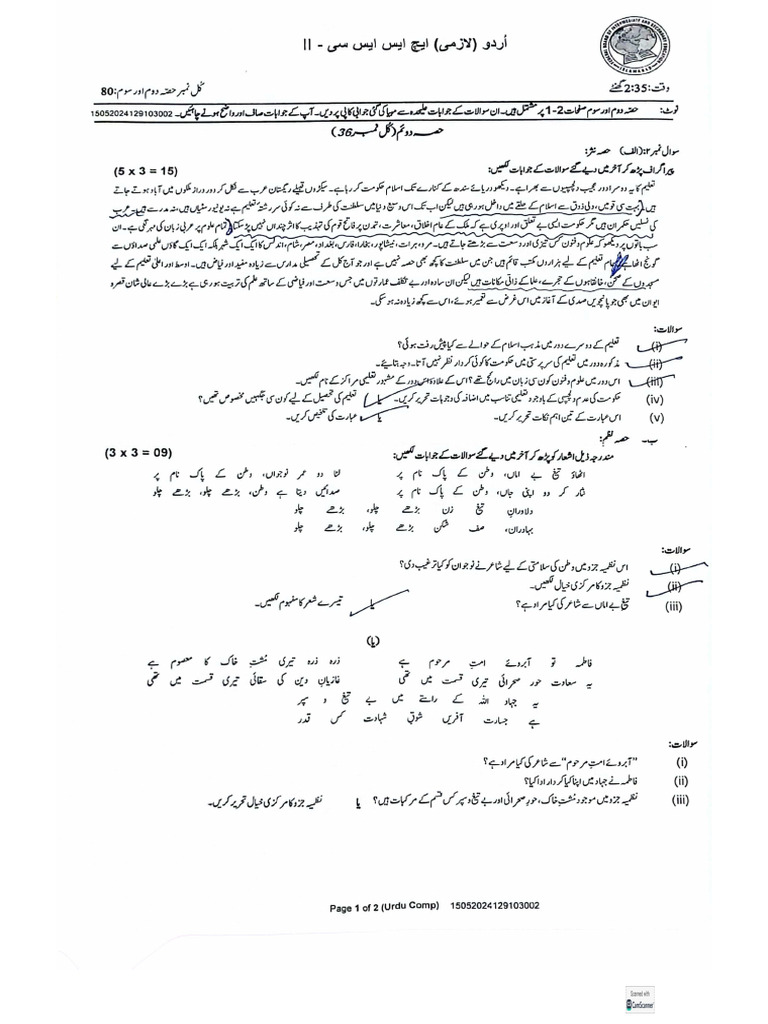 اُردو (لازمی) ایچ ایس ایس سی - II
وقت: 2:35 گھنٹے
کُل نمبر حصّہ دوم اور سوم: 80
نوٹ: حصّہ دوم اور سوم صفحات 2-1 پر مشتمل ہیں۔ ان سوالات کے جوابات علیحدہ سے مہیا کی گئی جوابی کاپی پر دیں۔ آپ کے جوابات صاف اور واضح ہونے چاہئیں۔ 15052024129103002
حصہ دوئم (کُل نمبر 36)
سوال نمبر ۲: (الف) حصہ نثر:
پیراگراف پڑھ کر آخر میں دیے گئے سوالات کے جوابات لکھیں: (5 x 3 = 15)
تعلیم کا یہ دوسرا دور عجیب دلچسپیوں سے بھرا ہے۔ دیکھو دریائے سندھ کے کنارے تک اسلام حکومت کر رہا ہے۔ سیکڑوں قبیلے ریگستان عرب سے نکل کر دور دراز ملکوں میں آباد ہوتے جاتے
ہیں بہت سی قومیں، دلی ذوق سے اسلام کے حلقے میں داخل ہو رہی ہیں لیکن اب تک اس وسیع دنیا میں سلطنت کی طرف سے نہ کوئی سررشتۂ تعلیم ہے نہ یونیورسٹیاں ہیں، نہ مدرسے ہیں، عرب
کی نسلیں حکمران ہیں مگر حکومت ایسی بے تعلق اور اوپری ہے کہ ملک کے عام اخلاق، معاشرت، تمدن پر فاتح قوم کی تہذیب کا اثر چنداں نہیں پڑ سکتا۔ تمام علوم پر عربی زبان کی مہر لگی ہے۔ ان
سب باتوں پر دیکھو کہ علوم و فنون کس تیزی اور وسعت سے بڑھتے جاتے ہیں۔ مرو، ہرات، نیشاپور، بخارا، فارس، بغداد، مصر، شام، اندلس کا ایک ایک شہر بلکہ ایک ایک گاؤں علمی صداؤں سے
گونج اٹھا ہے عام تعلیم کے لیے ہزاروں مکتب قائم ہیں جن میں سلطنت کا کچھ بھی حصہ نہیں ہے اور جو آج کل کے تحصیلی مدارس سے زیادہ مفید اور فیاض ہیں۔ اوسط اور اعلیٰ تعلیم کے لیے
مسجدوں کے صحن، خانقاہوں کے حجرے، علما کے ذاتی مکانات ہیں لیکن ان سادہ اور بے تکلف عمارتوں میں جس وسعت اور فیاضی کے ساتھ علم کی تربیت ہو رہی ہے بڑے بڑے عالی شان قصر و
ایوان میں بھی جو پانچویں صدی کے آغاز میں اس غرض سے تعمیر ہوئے، اس سے کچھ زیادہ نہ ہو سکی۔
سوالات:
(i) تعلیم کے دوسرے دور میں مذہب اسلام کے حوالے سے کیا پیش رفت ہوئی؟
(ii) مذکورہ دور میں تعلیم کی سرپرستی میں حکومت کا کوئی کردار نظر نہیں آتا۔ وجہ بتائیے۔
(iii) اس دور میں علوم و فنون کون سی زبان میں رائج تھے؟ اس کے علاوہ اس دور کے مشہور تعلیمی مراکز کے نام لکھیں۔
(iv) حکومت کی عدم دلچسپی کے باوجود تعلیمی تناسب میں اضافہ کی وجوہات تحریر کریں۔ یا تعلیم کی تحصیل کے لیے کون سی جگہیں مخصوص تھیں؟
(v) اس عبارت کے تین اہم نکات تحریر کریں۔ یا عبارت کی تلخیص کریں۔
ب۔ حصہ نظم:
مندرجہ ذیل اشعار کو پڑھ کر آخر میں دیے گئے سوالات کے جوابات لکھیں: (3 x 3 = 09)
اٹھاؤ تیغ بے اماں، وطن کے پاک نام پر لٹا دو عمر نوجواں، وطن کے پاک نام پر
نثار کر دو اپنی جاں، وطن کے پاک نام پر صدائیں دیتا ہے وطن، بڑھے چلو، بڑھے چلو
دلاورانِ تیغ زن بڑھے چلو، بڑھے چلو
بہادران، صف شکن بڑھے چلو، بڑھے چلو
سوالات:
(i) اس نظمیہ جزو میں وطن کی سلامتی کے لیے شاعر نے نوجوان کو کیا ترغیب دی؟
(ii) نظمیہ جزو کا مرکزی خیال لکھیں۔
(iii) تیغ بے اماں سے شاعر کی کیا مراد ہے؟ یا تیسرے شعر کا مفہوم لکھیں۔
(یا)
فاطمہ تو آبروئے امتِ مرحوم ہے ذرہ ذرہ تیری مُشتِ خاک کا معصوم ہے
یہ سعادت حورِ صحرائی تیری قسمت میں تھی غازیانِ دین کی سقائی تیری قسمت میں تھی
یہ جہاد اللہ کے راستے میں بے تیغ و سپر
ہے جسارت آفریں شوقِ شہادت کس قدر
سوالات:
(i) "آبروئے امتِ مرحوم" سے شاعر کی کیا مراد ہے؟
(ii) فاطمہ نے جہاد میں اپنا کیا کردار ادا کیا؟
(iii) نظمیہ جزو میں موجود مُشتِ خاک، حورِ صحرائی اور بے تیغ و سپر کس قسم کے مرکبات ہیں؟ یا نظمیہ جزو کا مرکزی خیال تحریر کریں۔
Page 1 of 2 (Urdu Comp) 15052024129103002
Scanned with
CamScanner